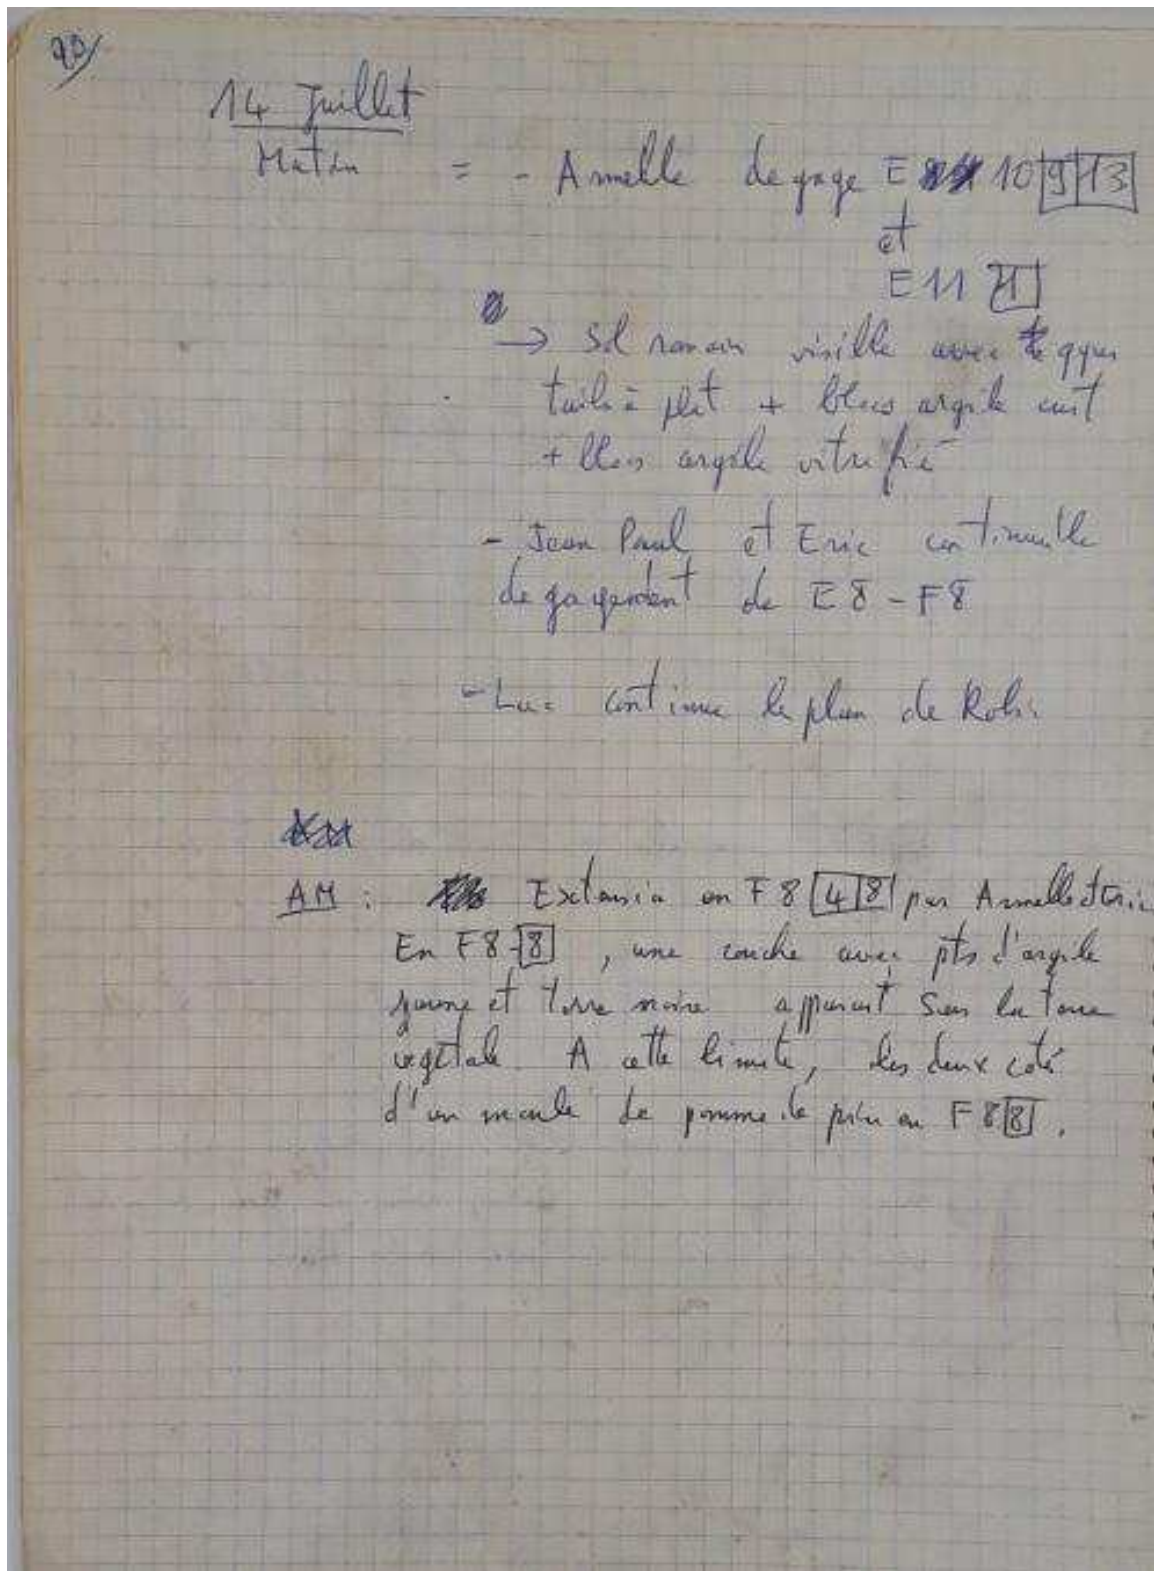 14 Juillet
Matin = - Armelle degage E 10 9 13
et
E11
→ Sol romain visible avec qques
tuiles à plat + blocs argile cuit
+ blocs argile vitrifié
- Jean Paul et Eric continue le
degagement de E8 - F8
- Luc continue le plan de Robin
AM : Extension en F8 4 8 par Armelle et Eric
En F8-8 , une couche avec pts d'argile
jaune et terre noire apparait sous la terre
vegetale. A cette limite, les deux coté
d'un moule de pomme de pin en F8 8.